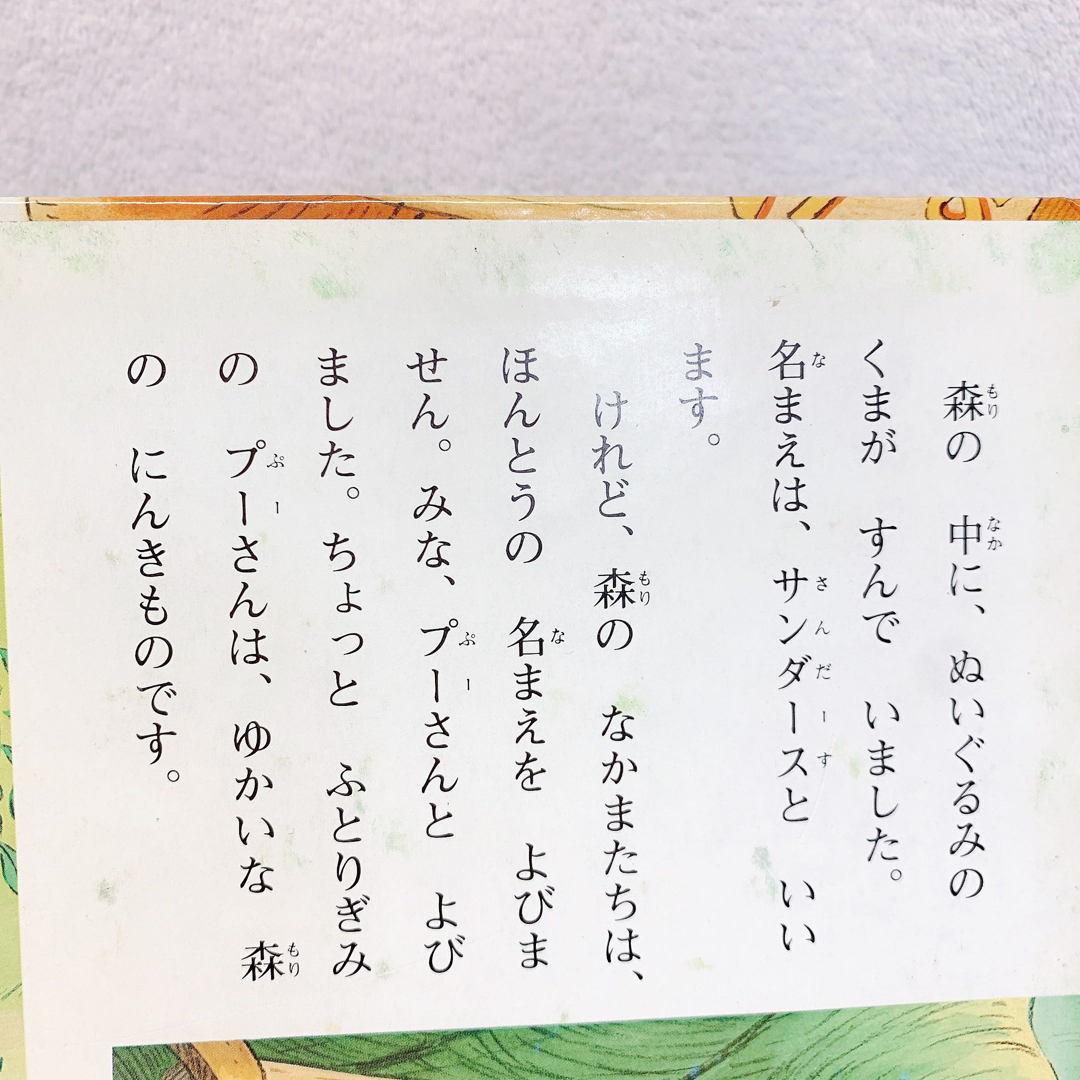 森の　中に、ぬいぐるみの
くまが　すんで　いました。
名まえは、サンダースと　いい
ます。
けれど、森の　なかまたちは、
ほんとうの　名まえを　よびま
せん。みな、プーさんと　よび
ました。ちょっと　ふとりぎみ
の　プーさんは、ゆかいな　森
の　にんきものです。